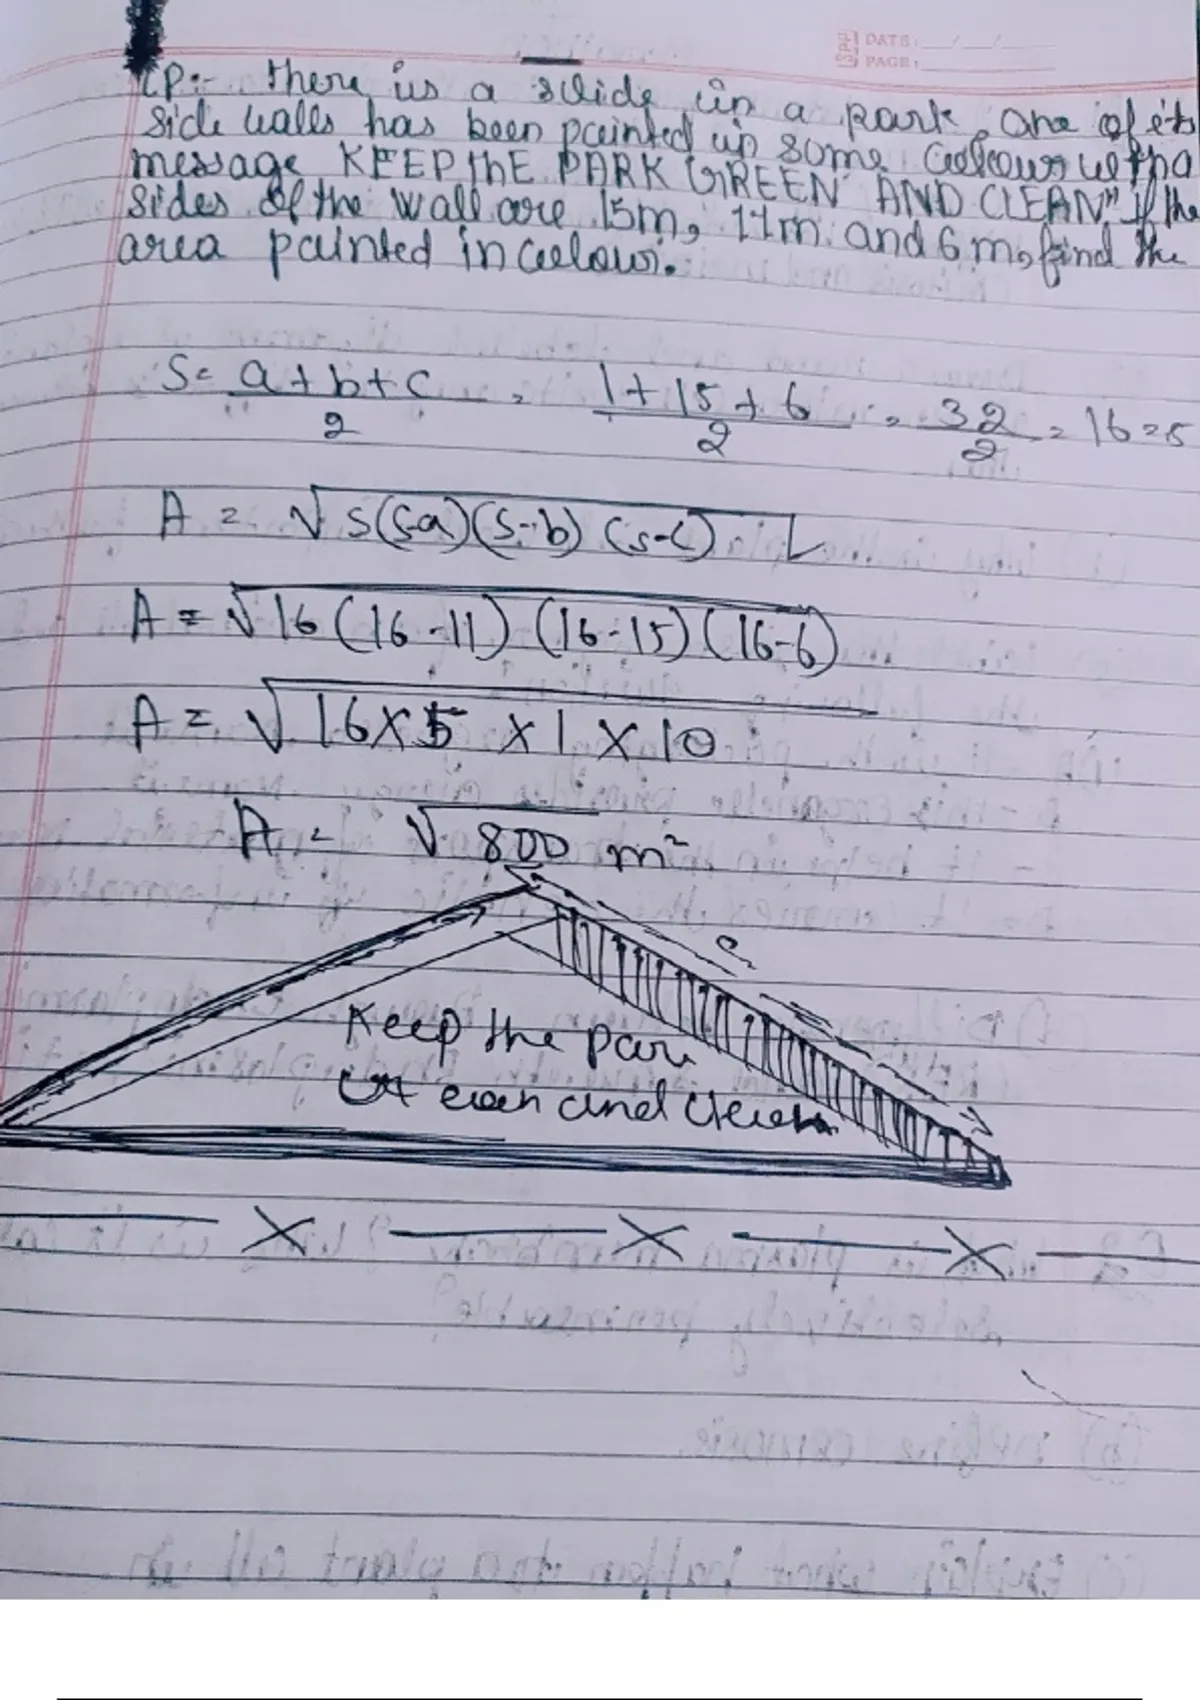 DATE: __/__/__
PAGE:
CP:- there is a slide in a park, one of its
side walls has been painted in some colour with a
message KEEP thE PARK GREEN AND CLEAN" If the
sides of the wall are 15m, 11m. and 6m, find the
area painted in colour.
S= a+b+c/2 = 1+15+6/2 = 32/2 = 16=s
A = √s(s-a)(s-b)(s-c)
A = √16(16-11)(16-15)(16-6)
A = √16×5×1×10
A = √800 m²
Keep the par
and clean